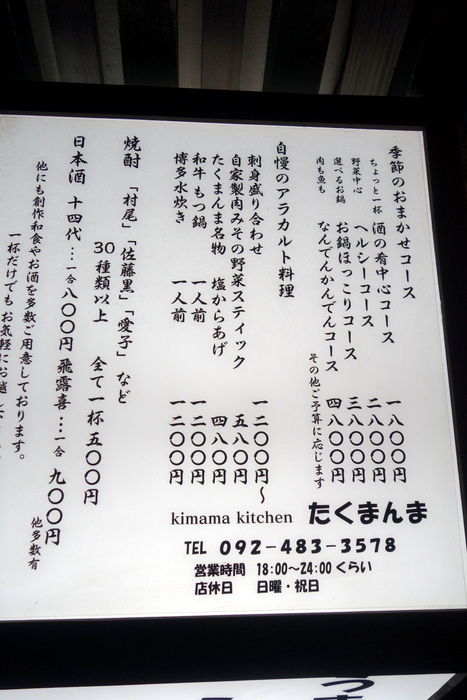 季節のおまかせコース
ちょっと一杯 酒の肴中心コース 一八〇〇円
野菜中心 ヘルシーコース 二八〇〇円
選べるお鍋 お鍋ほっこりコース 三八〇〇円
肉も魚も なんでんかんでんコース 四八〇〇円
その他ご予算に応じます
自慢のアラカルト料理
刺身盛り合わせ 一二〇〇円～
自家製肉みその野菜スティック 五八〇円
たくまんま名物 塩からあげ 四八〇円
和牛もつ鍋 一人前 一二〇〇円
博多水炊き 一人前 一二〇〇円
焼酎 「村尾」「佐藤黒」「愛子」など
30種類以上 全て一杯五〇〇円
日本酒 十四代…一合八〇〇円 飛露喜…一合 九〇〇円
他多数有
他にも創作和食やお酒を多数ご用意しております。
一杯だけでもお気軽にお越し
kimama kitchen たくまんま
TEL 092-483-3578
営業時間 18:00～24:00くらい
店休日 日曜・祝日